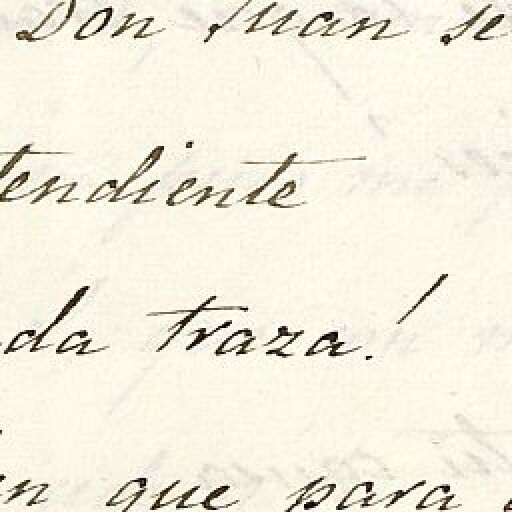 Don Juan se
tendiente
da traza!
en que para